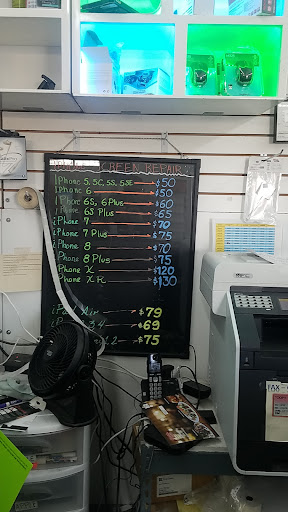 SCREEN REPAIRS
iPhone 5, 5C, 5S, 5SE $50
iPhone 6 $50
iPhone 6S, 6 Plus $60
iPhone 6S Plus $65
iPhone 7 $70
iPhone 7 Plus $75
iPhone 8 $70
Phone 8 Plus $75
Phone X $120
Phone XR $130
iPad Air $79
$69
$75
FAX